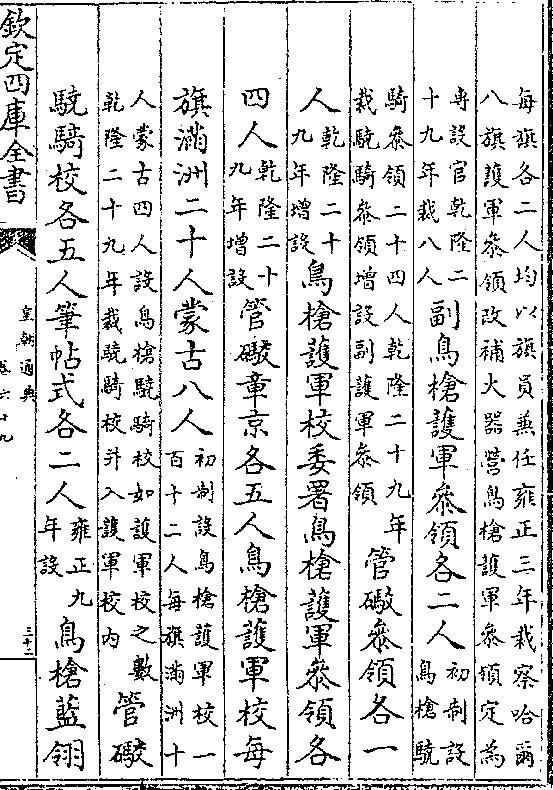 每旗各二人均以旗員兼任雍正三年裁察哈爾
八旗護軍叅領改補火器營鳥槍護軍叅領定為
專設官乾隆二
十九年裁八人
副鳥槍護軍叅領各二人
初制設
鳥槍驍
騎叅領二十四人乾隆二十九年
裁驍騎叅領增設副護軍叅領
管礮叅領各一
人
乾隆二十
九年增設
鳥槍護軍校委署鳥槍護軍叅領各
四人
乾隆二十
九年增設
管礮章京各五人鳥槍護軍校每
旗滿洲二十人蒙古八人
初制設鳥槍護軍校一
百十二人每旗滿洲十
人蒙古四人設鳥槍驍騎校如護軍校之數
乾隆二十九年裁驍騎校并入護軍校内
管礮
驍騎校各五人筆帖式各二人
雍正九
年設
鳥槍藍翎
欽定四庫全書
皇朝通典
卷六十九
三十二